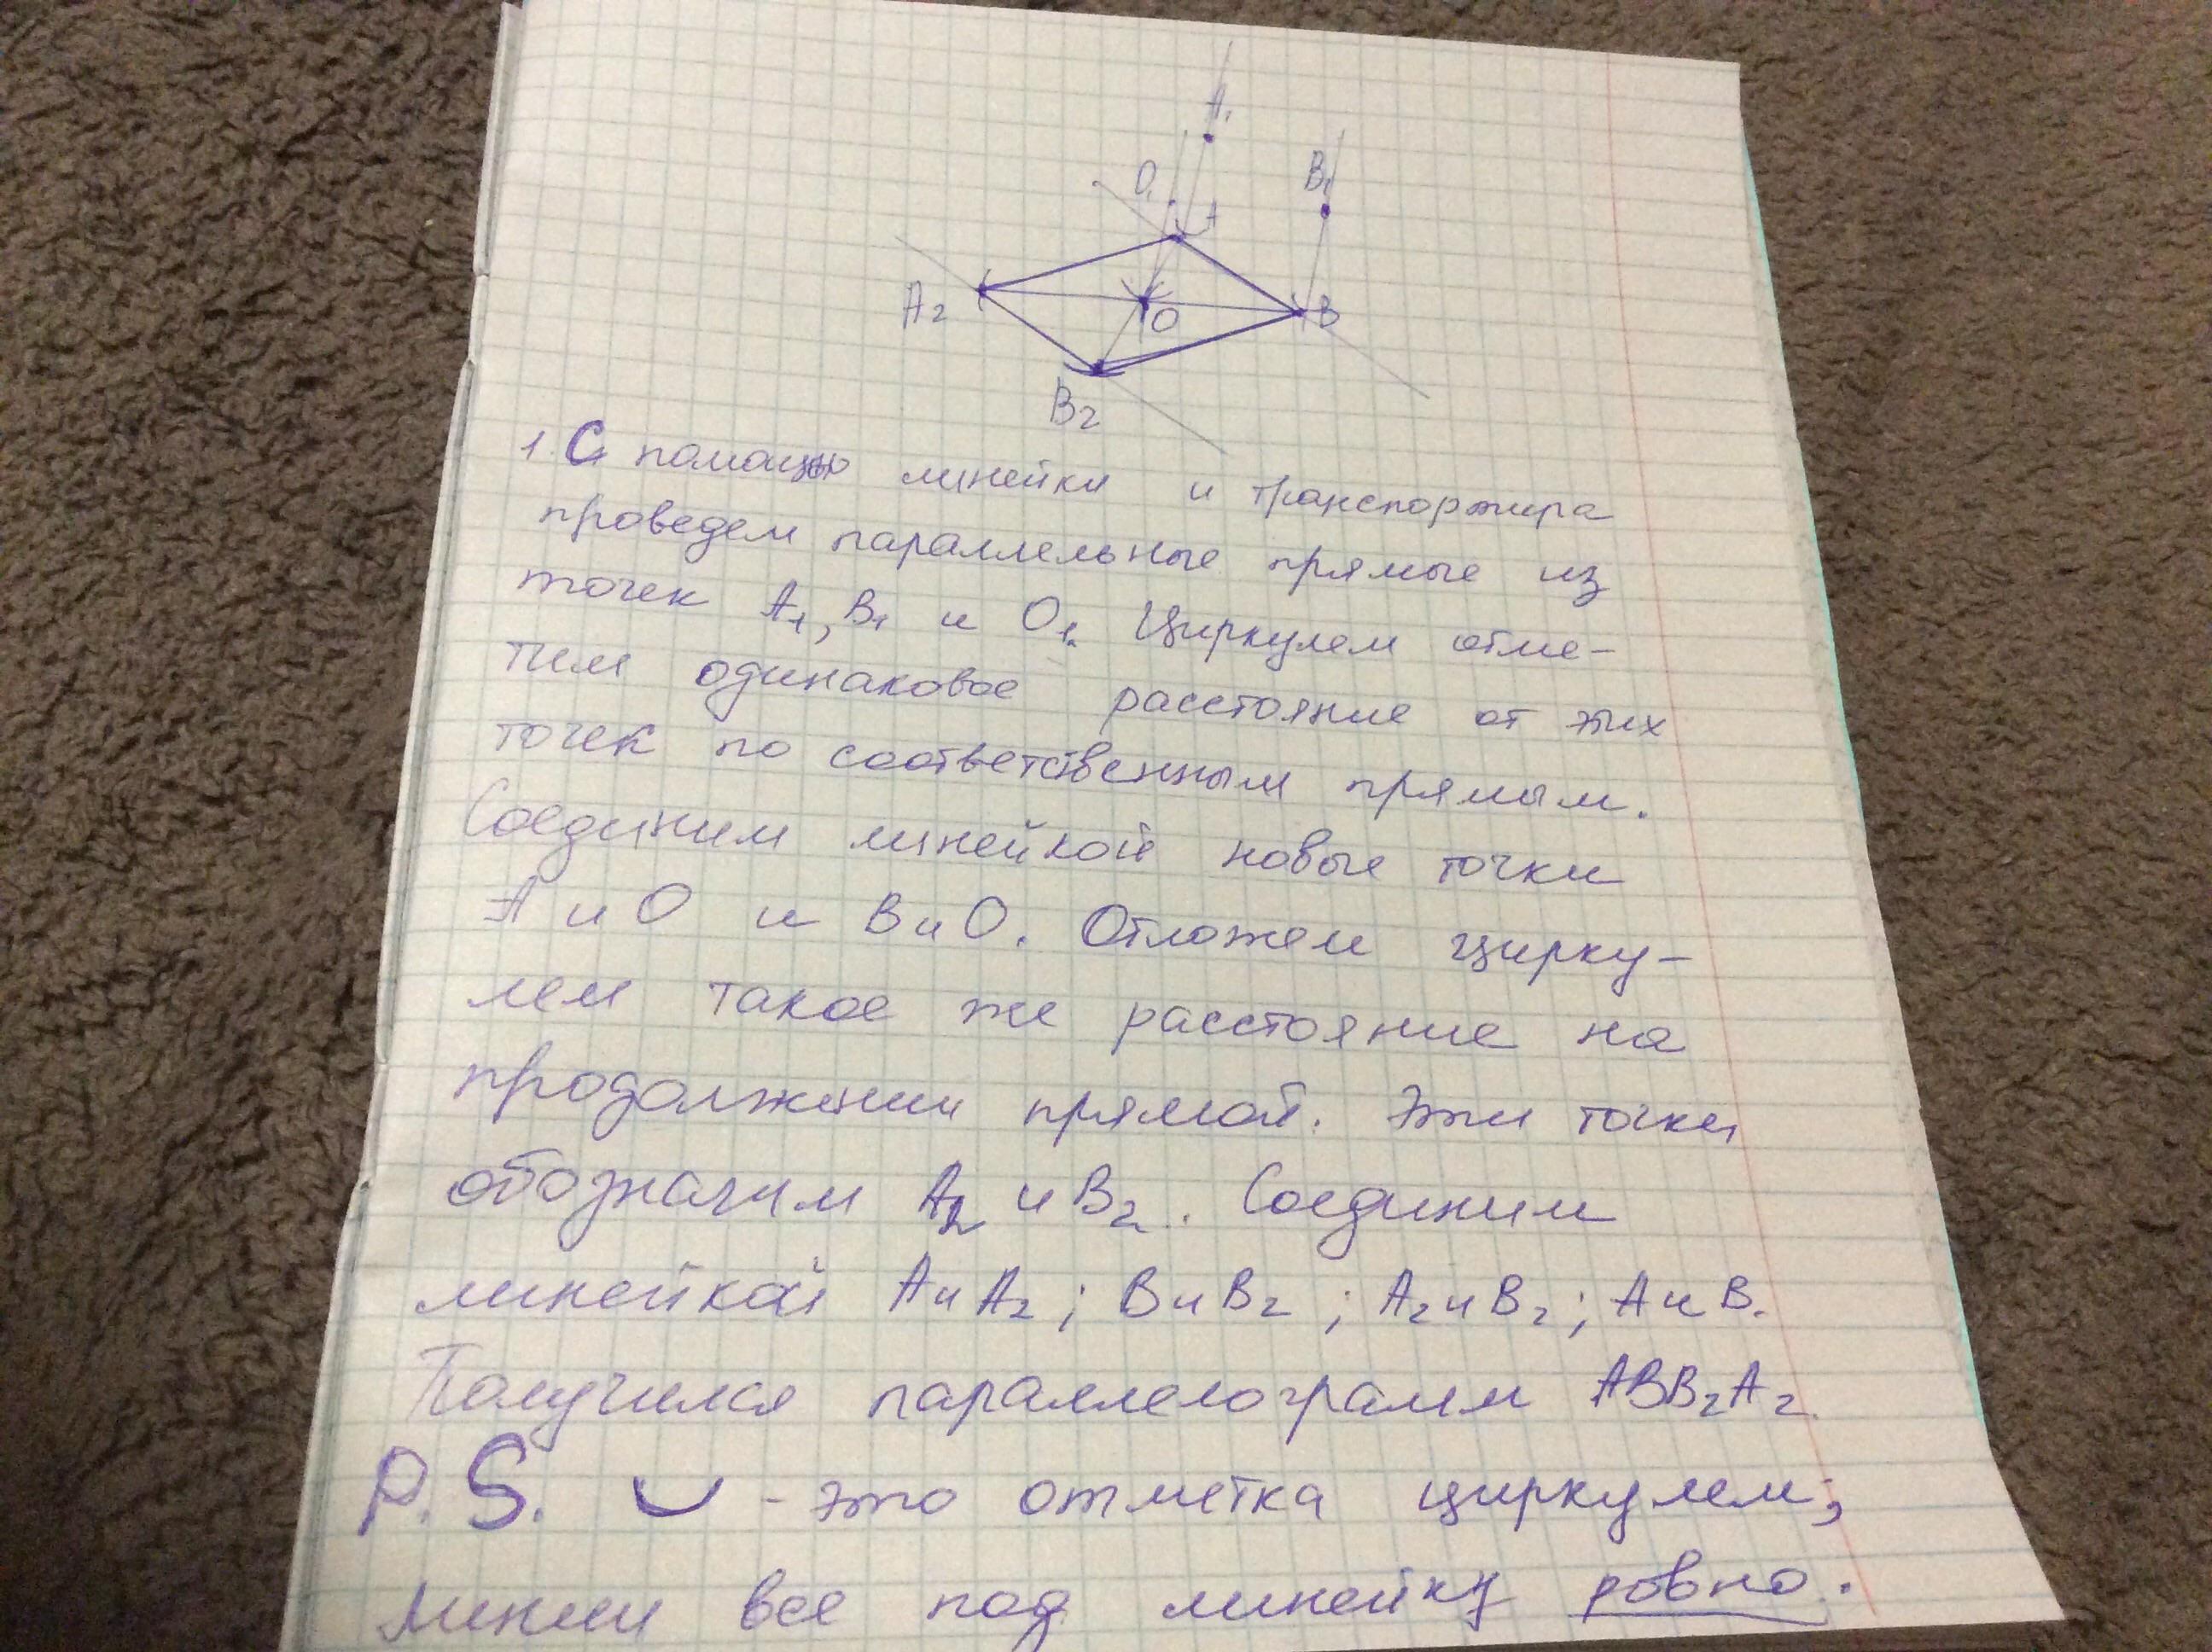 A₁
O₁ B₁
A
A₂ O B
B₂
1. С помощью линейки и транспортира
проведем параллельные прямые из
точек A₁, B₁ и O₁. Циркулем отме-
тим одинаковое расстояние от этих
точек по соответственным прямым.
Соединим линейкой новые точки
А и О и В и О. Отложем цирку-
лем такое же расстояние на
продолжении прямой. Эти точки
обозначим A₂ и B₂. Соединим
линейкой А и A₂; В и B₂; A₂ и B₂; А и В.
Получился параллелограмм ABB₂A₂.
P.S. ◡ - это отметка циркулем;
линии все под линейку ровно.